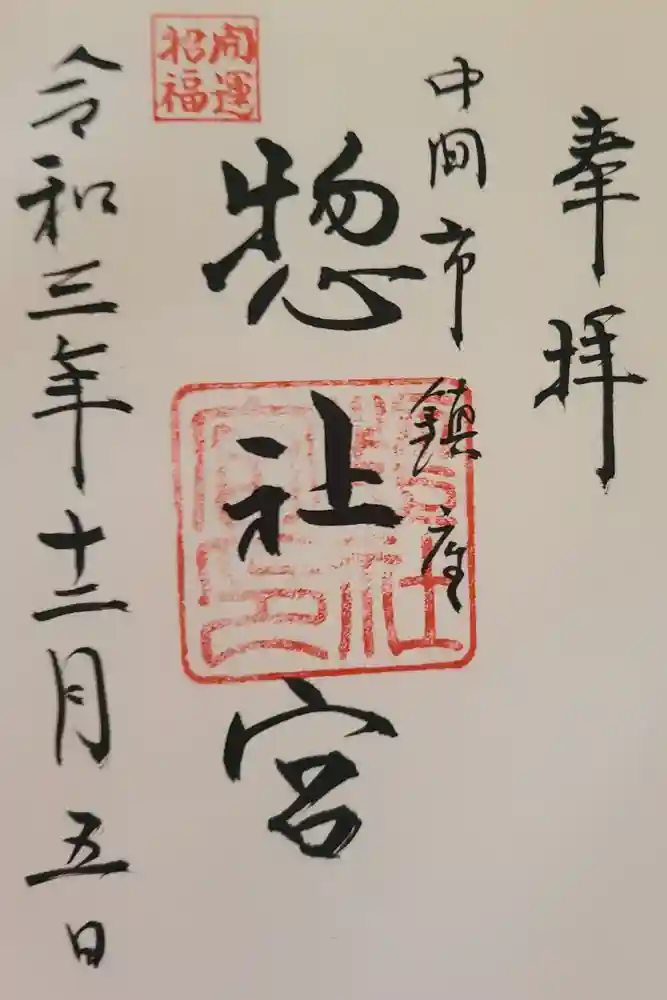 奉拝
中間市鎮座
惣社宮
開運招福
令和三年十二月五日